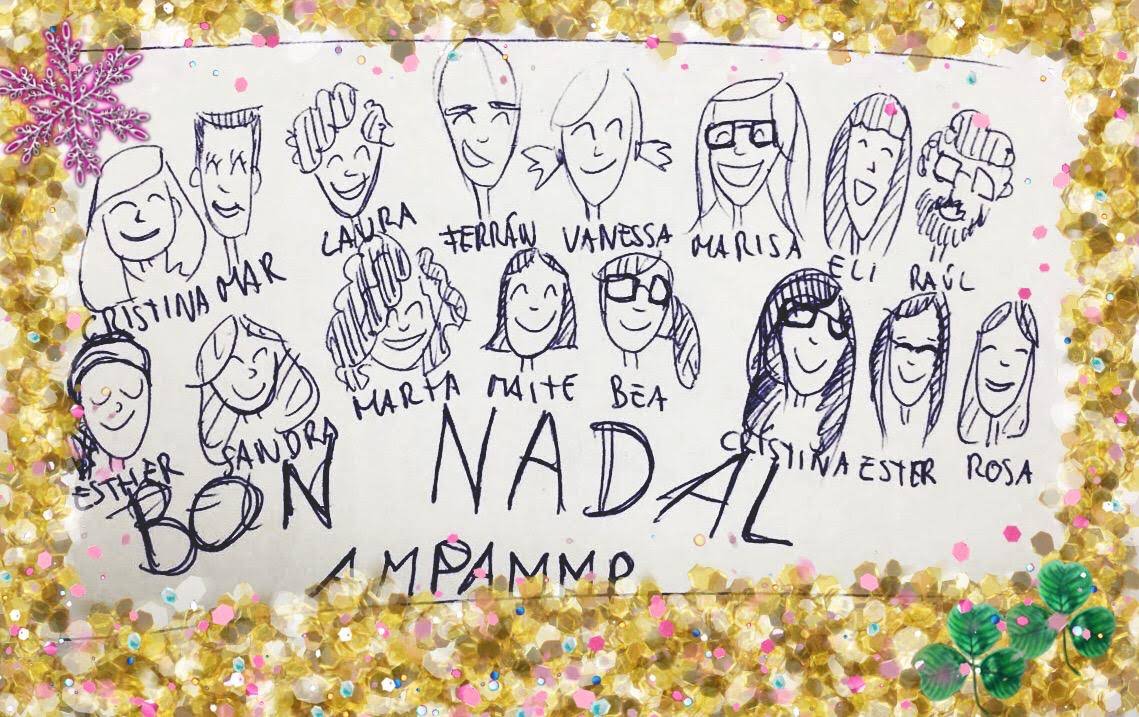 CRISTINA MAR LAURA FERRÁN VANESSA MARISA ELI RAÚL
ESTHER SANDRA MARTA MAITE BEA CRISTINA ESTER ROSA
BON NADAL
AMPAMMP